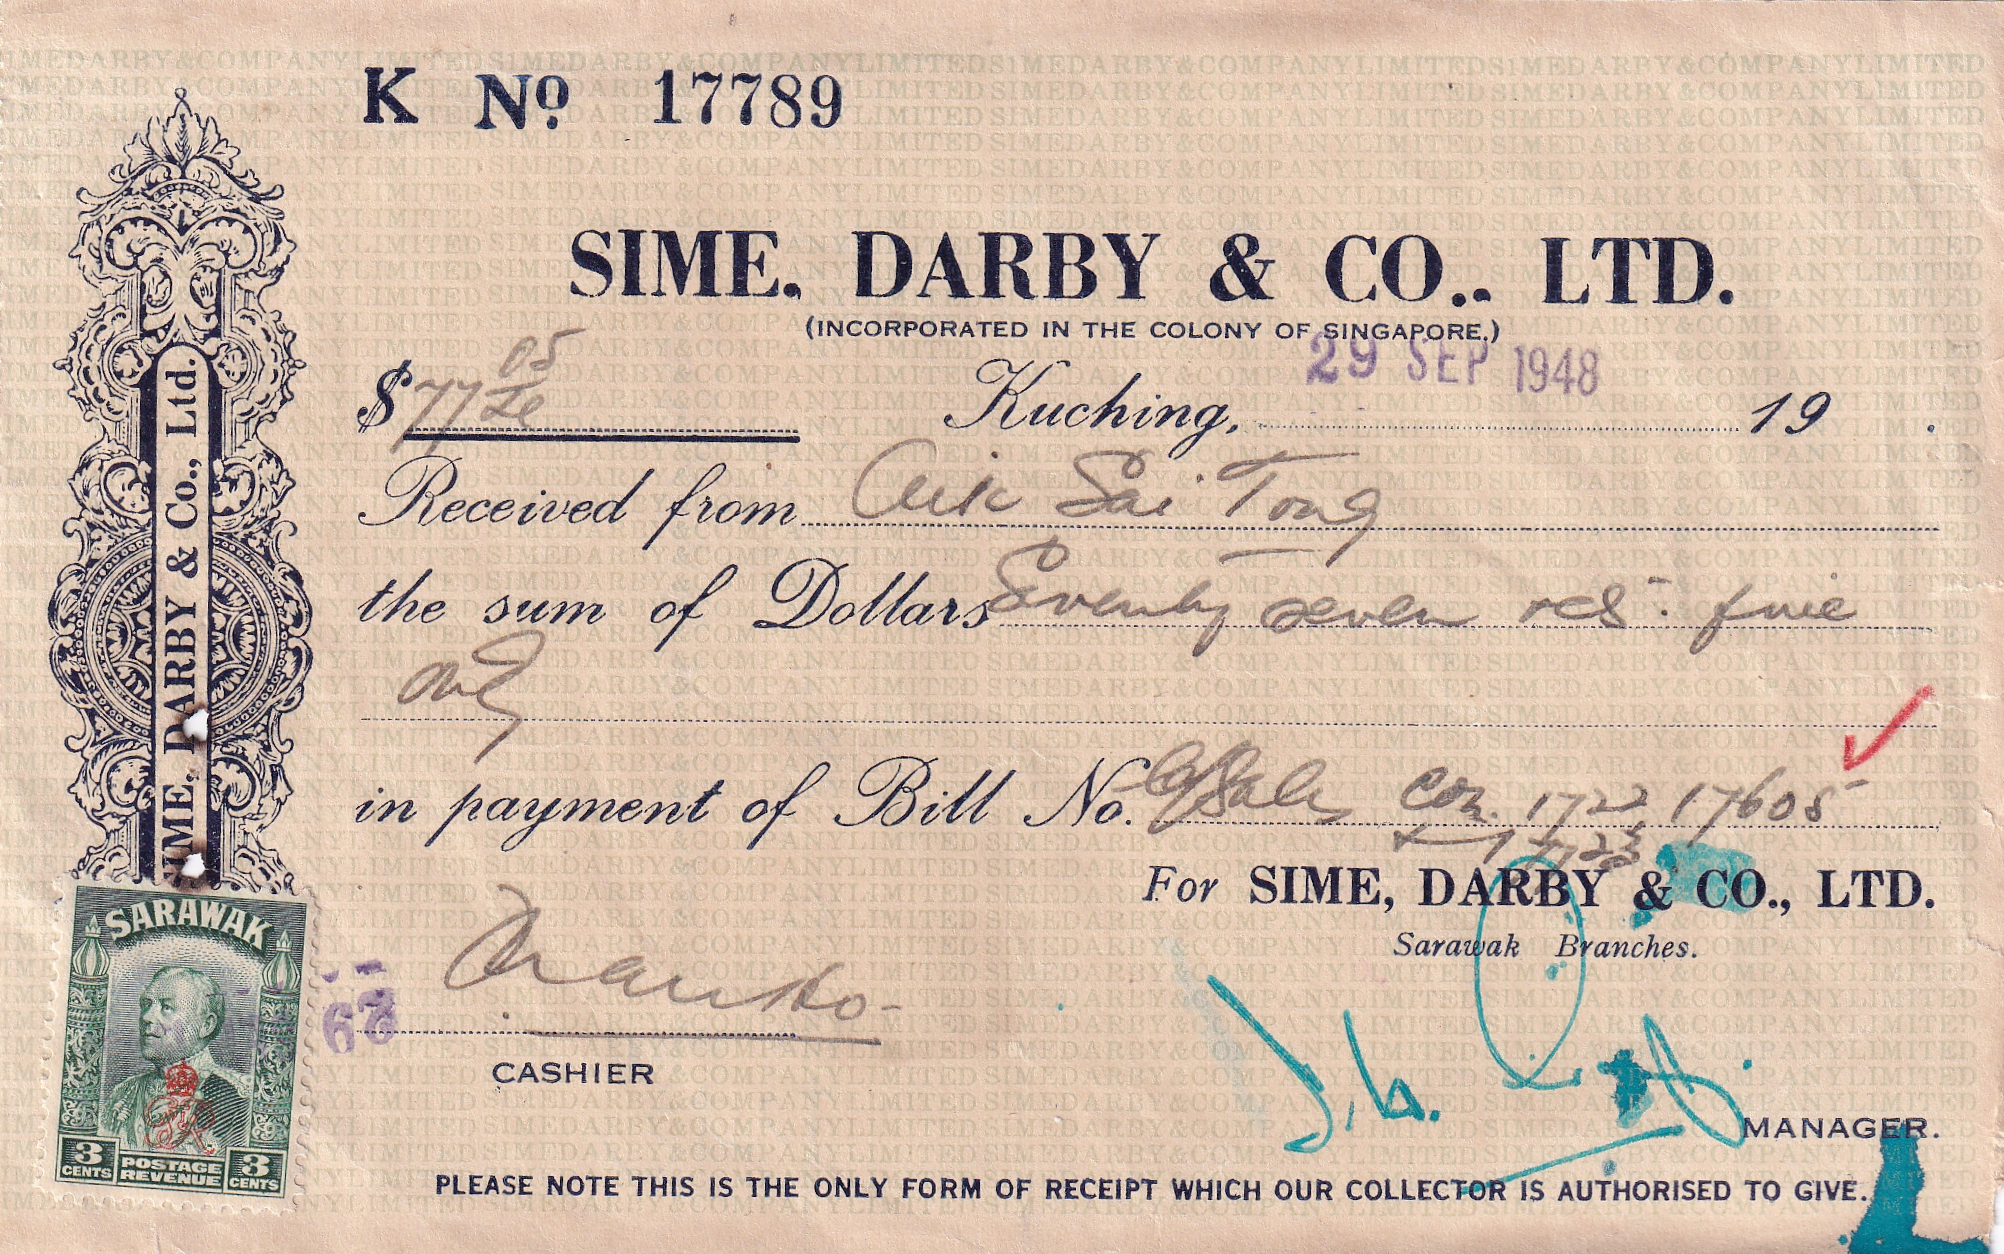 K Nº 17789
SIME, DARBY & CO., LTD.
(INCORPORATED IN THE COLONY OF SINGAPORE.)
29 SEP 1948
$ 77 05
Kuching, 19 .
Received from Aik Sai Tong
the sum of Dollars Seventy seven & cts. five
only
in payment of Bill No. Con. 1722, 17605
1723
For SIME, DARBY & CO., LTD.
Sarawak Branches.
CASHIER
MANAGER.
PLEASE NOTE THIS IS THE ONLY FORM OF RECEIPT WHICH OUR COLLECTOR IS AUTHORISED TO GIVE.
SIME, DARBY & Co., Ltd.
SARAWAK
3 CENTS
POSTAGE REVENUE
3 CENTS
SIMEDARBY&COMPANYLIMITED